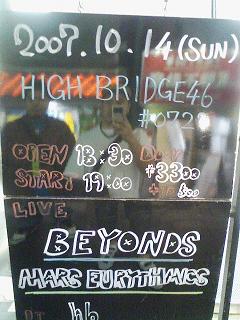 2007.10.14(SUN)
HIGH BRIDGE46
#072
OPEN 18:30
START 19:00 ¥3300
LIVE
BEYONDS
MARC EURYTHMICS